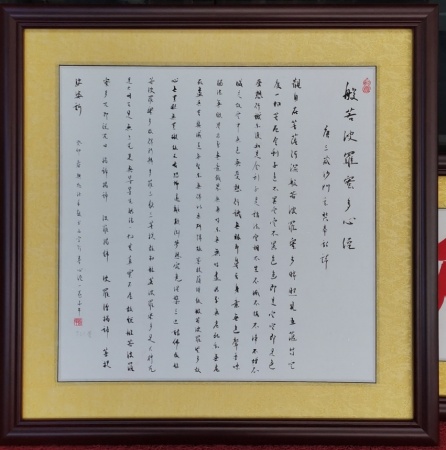 般若波羅蜜多心經
唐三藏沙門玄奘奉詔譯
觀自在菩薩行深般若波羅蜜多時照見五蘊皆空
度一切苦厄舍利子色不異空空不異色色即是空空即是色
受想行識亦復如是舍利子是諸法空相不生不滅不垢不淨不增不
減是故空中無色無受想行識無眼耳鼻舌身意無色聲香味
觸法無眼界乃至無意識界無無明亦無無明盡乃至無老死亦無老
死盡無苦集滅道無智亦無得以無所得故菩提薩埵依般若波羅蜜多故
心無罣礙無罣礙故無有恐怖遠離顛倒夢想究竟涅槃三世諸佛依般
若波羅蜜多故得阿耨多羅三藐三菩提故知般若波羅蜜多是大神咒
是大明咒是無上咒是無等等咒能除一切苦真實不虛故說般若波羅
蜜多咒即說咒曰 揭諦揭諦 波羅揭諦 波羅僧揭諦 菩提
薩婆訶